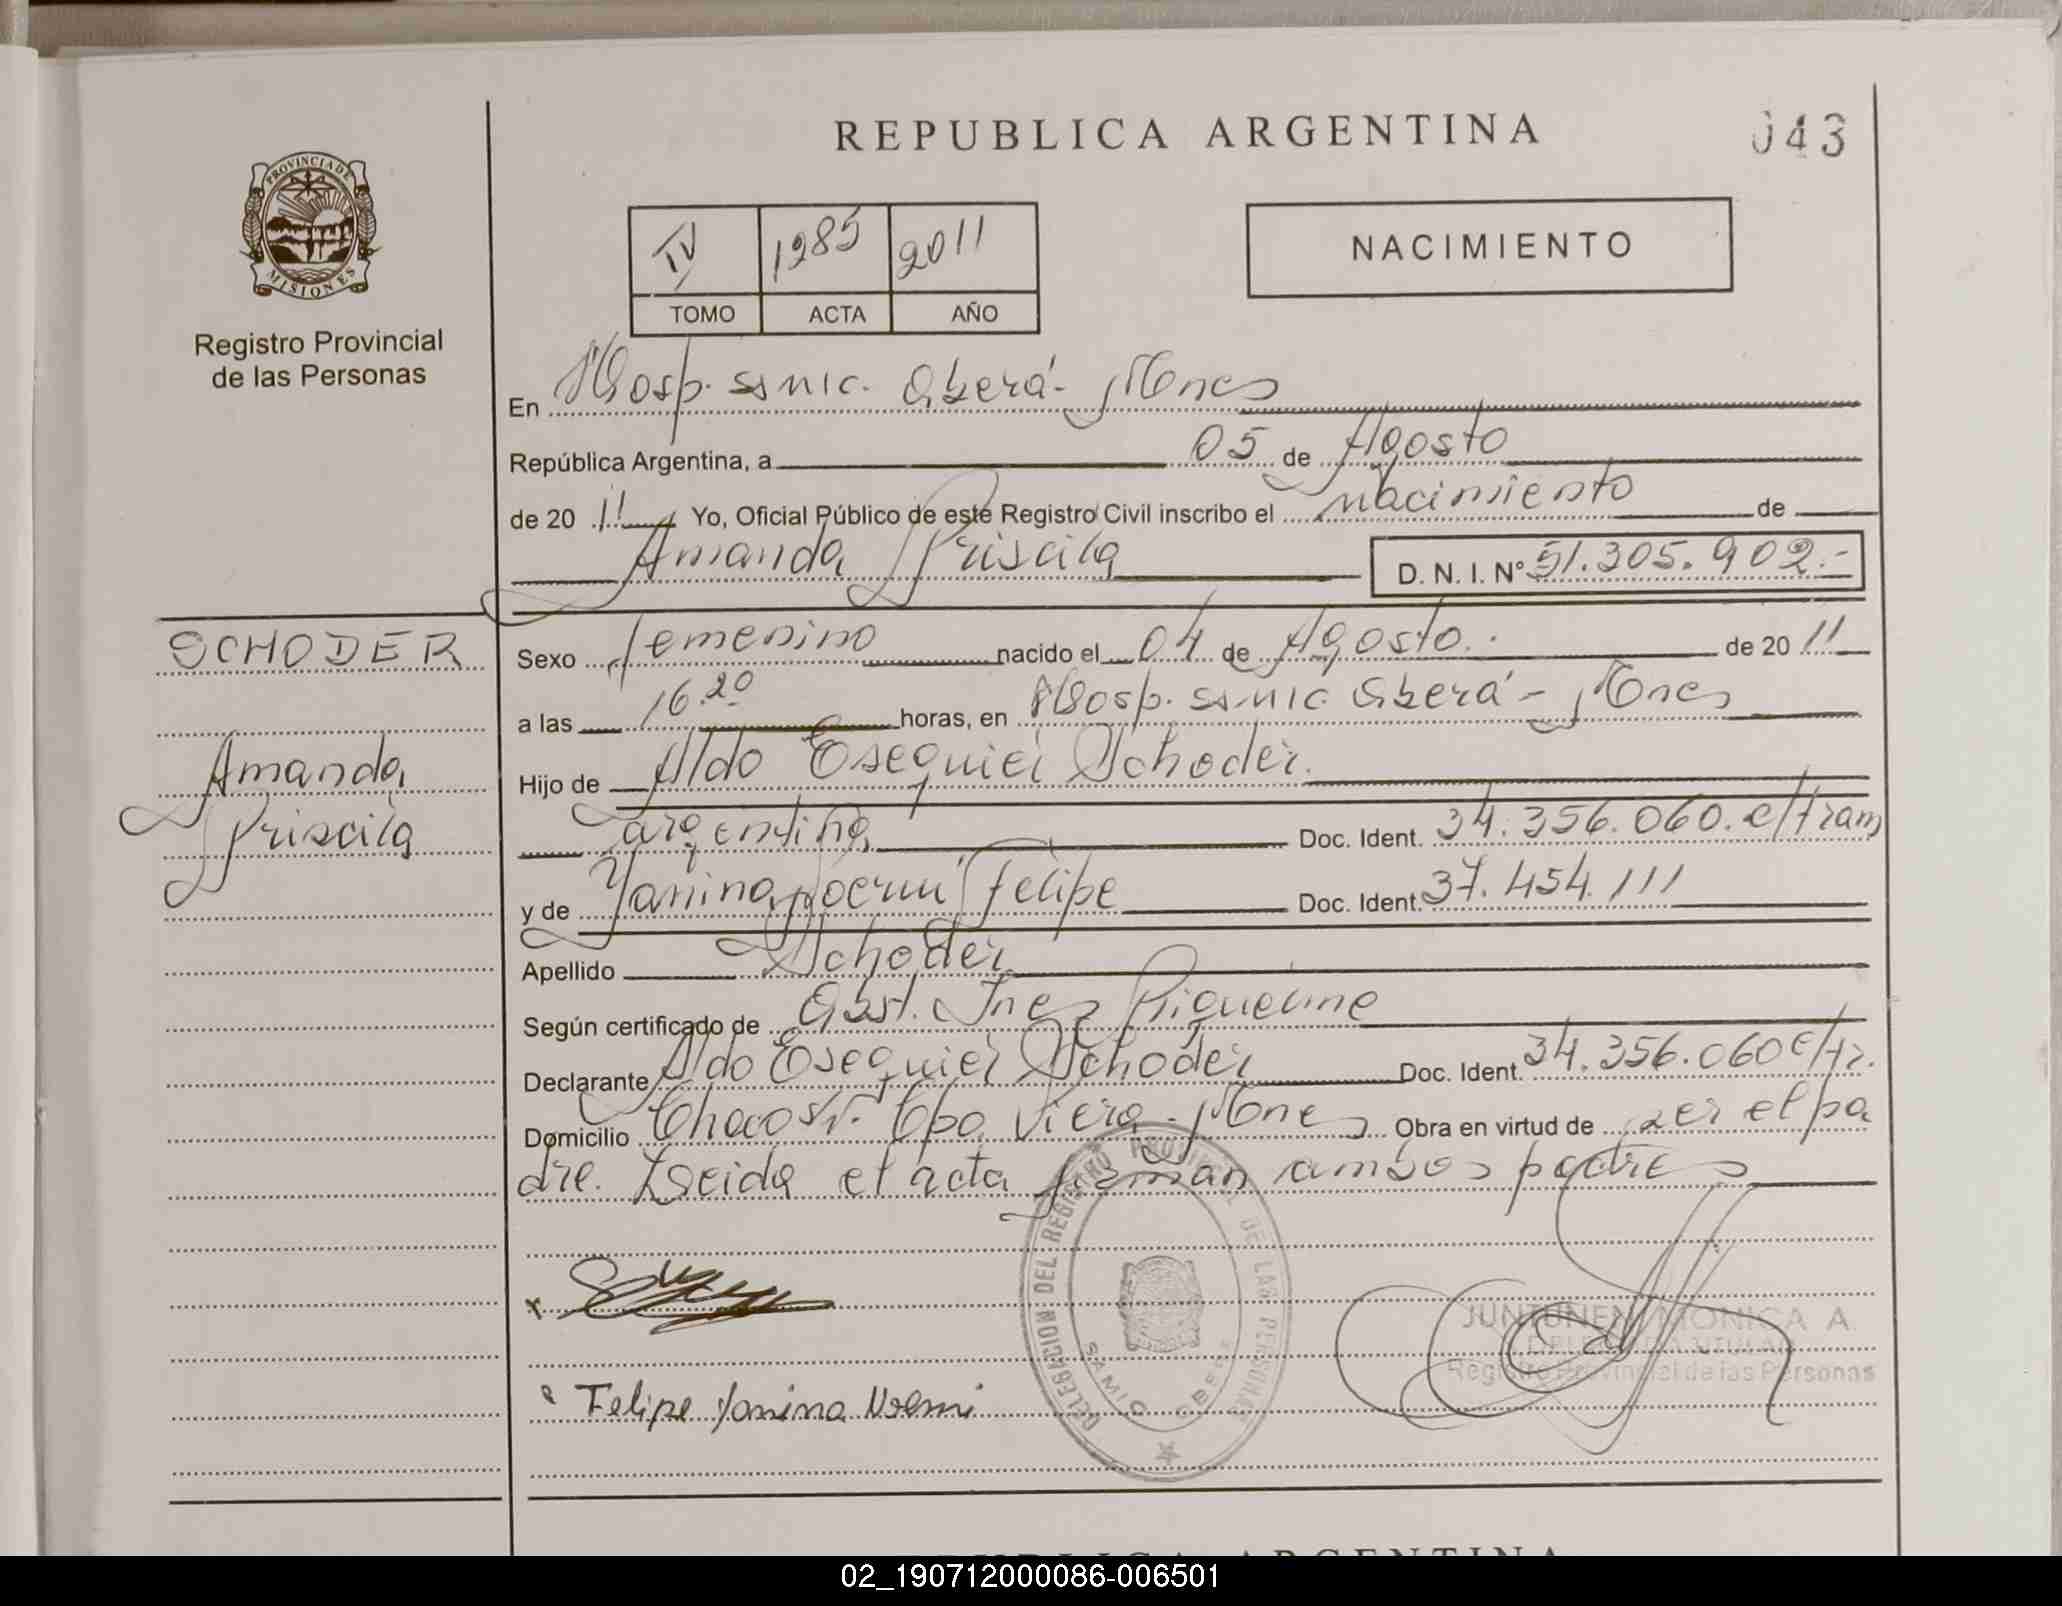 REPUBLICA ARGENTINA
043
PROVINCIA DE
MISIONES
Registro Provincial
de las Personas
IV 1985 2011
TOMO ACTA AÑO
NACIMIENTO
En Hosp. samic. Oberá - Mnes
República Argentina, a 05 de Agosto
de 20 11 Yo, Oficial Público de este Registro Civil inscribo el nacimiento de
Amanda Priscila D. N. I. Nº 51.305.902.-
SCHODER
Amanda
Priscila
Sexo femenino nacido el 04 de Agosto. de 20 11
a las 16.20 horas, en Hosp. samic. Oberá - Mnes
Hijo de Aldo Esequiel Schoder.
argentina Doc. Ident. 34.356.060. c/tram
y de Yanina Noemi Felipe Doc. Ident. 37.454.111
Apellido Schoder
Según certificado de Obst. Ines Riquelme
Declarante Aldo Esequiel Schoder Doc. Ident. 34.356.060 c/tr.
Domicilio Chaco s/n. Cpo. Viera - Mnes Obra en virtud de ser el pa
dre. Leida el acta firman ambos padres
x
Felipe Yanina Noemi
DELEGACION DEL REGISTRO PROVINCIAL DE LAS PERSONAS
SAMIC OBERA
JUNTUNEN MONICA A.
DELEGADA TITULAR
Registro Provincial de las Personas
REPUBLICA ARGENTINA
02_190712000086-006501